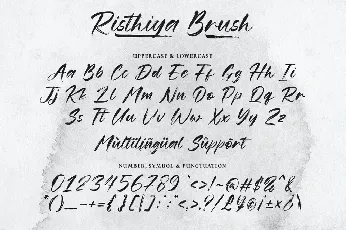 Risthiya Brush
UPPERCASE & LOWERCASE
Aa Bb Cc Dd Ee Ff Gg Hh Ii
Jj Kk Ll Mm Nn Do Pp Qq Rr
Ss Tt Uu Vv Ww Xx Yy Zz
Mùltilingüal Sûppórt
NUMBER, SYMBOL & PUNCTUATION
0123456789 `<>!~@#$%^&
*()_-+={}[]:;"<,>.?/£¥@¡±×